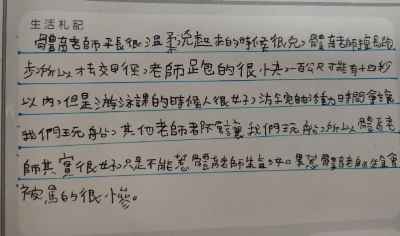 生活札記
體育老師平長很溫柔兇起來的時候很兇,體育老師擅長跑
步所以才去交田徑,老師足包的很快,一百公尺可能有十四秒
以內,但是游泳課的時候人很好,游完的活動時間會讓
我們玩船,其他老師都不會讓我們玩船,所以體育老
師其實很好只是不能惹體育老師生氣,如果惹體育老師生氣會
被罵的很慘。